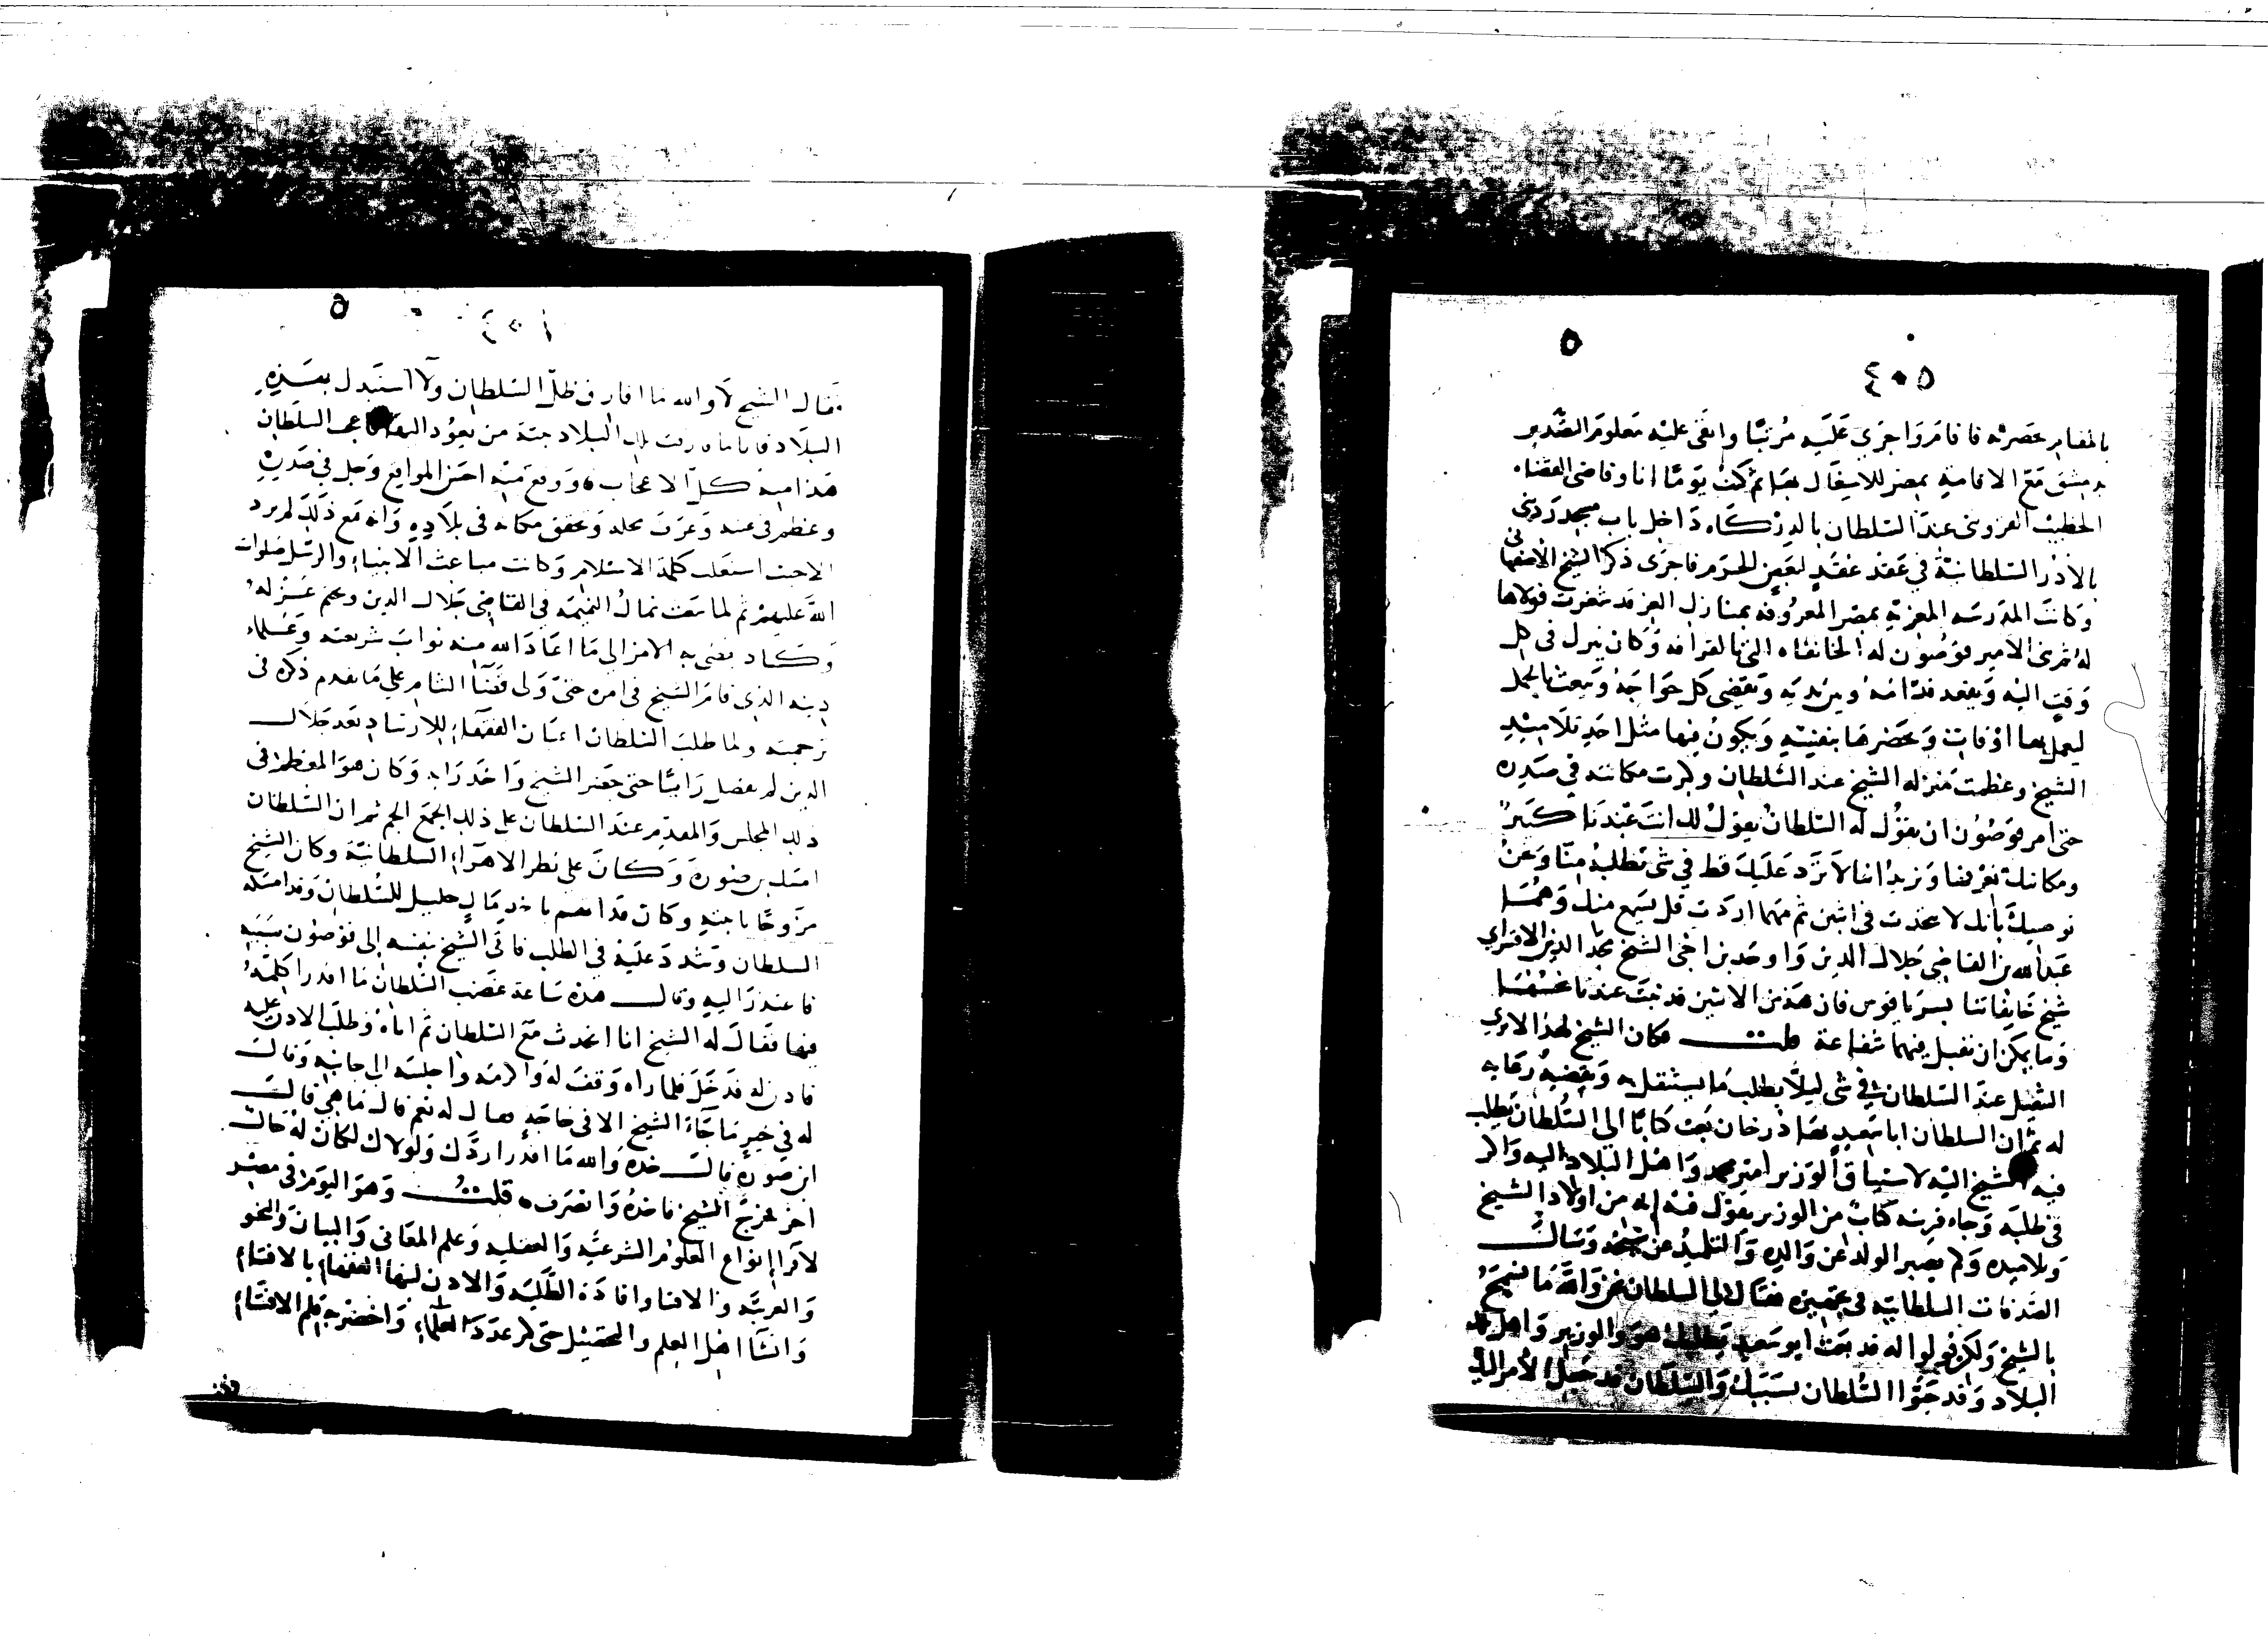 ٥
٤٠٥
بالمقام بحضرته فاقام واجرى عليه مرتبا وابقى عليه معلوم الصدير
بدمشق مع الاقامة بمصر للاشغال بها ثم كنت يوما انا وقاضى القضاه
الخطيب القزوينى عند السلطان بالدركاه داخل باب مسجد ردينى
بالادر السلطانية في عقد عقد لبعض الحرم فاجرى ذكر الشيخ الاصفهانى
وكانت المدرسه المعزية بمصر المعروفه بمنازل العز قد شغرت فولاها
له ثم بنى الامير قوصون له الخانقاه التى بالقرافه وكان ينزل في كل
وقت اليه ويقعد قدامه ويزيديه ويقضى كل حوايجه ويبعث بالجمل
ليعمل بها اوقات ويحضرها بنفسه ويكون فيها مثل احد تلاميذ
الشيخ وعظمت منزله الشيخ عند السلطان وكبرت مكانته في صدره
حتى امر قوصون ان يقول له السلطان يقول لك انت عندنا كبير
ومكانتك نعرفها ونريد اننا لا نرد عليك قط في شى تطلبه منا ونحن
نوصيك بانك لا تتحدث في اثنين ثم مهما اردت قل نسمع منك وهما
عبدالله بن القاضى جلال الدين واوحد بن اخى الشيخ مجد الدين الاقصراي
شيخ خانقاتنا بسرياقوس فان هذين الاثنين قد ثبت عندنا
وما يمكن ان نقبل فيهما شفاعة قلت فكان الشيخ لهذا لايرى
التثقيل عند السلطان في شى ليلا يطلب ما يستثقل به ويغضبه رعايه
له ثم ان السلطان ابا سعيد بهادرخان بعث كتابا الى السلطان يطلب
فيه الشيخ اليه لاستياق الوزير امير محمد واهل البلاد اليه واكد
فى طلبه وجاء قرينه كتاب من الوزير يقول فيه انه من اولاد الشيخ
وتلاميده ولم يصبر الولد عن والده والتلميذ عن شيخه وسالت
الصدقات السلطانيه في تجهيزه فقال لى السلطان نحن والله ما نسمح
بالشيخ ولكن قولوا له قد بعث ابو سعيد يطلبك هو والوزير واهل تلك
البلاد وقد جبوا السلطان بسببك والسلطان قد جعل الامر اليك
٥
٤٠٦
فقال الشيخ لا والله ما افارق ظل السلطان ولا استبدل بهذه
البلاد فانا ما فارقت تلك البلاد جنة من يعود اليها فاعجب السلطان
هذا منه كل الاعجاب ووقع منه احسن المواقع وحل في صدره
وعظم في عينه وعرف محله وتحقق مكانه فى بلاده وانه مع ذلك لم يرد
الا حيث استقلت كلمة الاسلام وكانت مباعث الانبياء والرسل صلوات
الله عليهم ثم لما سعت نمال النميمه في القاضى جلال الدين وتحتم عزله
وكاد يفضى به الامر الى ما اعاذ الله منه نواب شريعته وعلماء
دينه الذى قام الشيخ في امره حتى ولى قضاء الشام على ما تقدم ذكره فى
ترجمته ولما طلب السلطان اعيان الفقهاء للارشاد بعد جلال
الدين لم يفصل رايا حتى حضر الشيخ واخذ رايه وكان هو المعظم فى
ذلك المجلس والمقدم عند السلطان على ذلك الجمع الجم ثم ان السلطان
امسك بن صورة وكان على نظر الاهراء السلطانية وكان الشيخ
مزوجا باخته وكان قد اتهم باخذ مال جليل للسلطان وقد امسكه
السلطان وتشدد عليه في الطلب فاتى الشيخ بنفسه الى قوصون بسببه
فاعتذر اليه وقال هذه ساعة غضب السلطان ما اقدر اكلمه
فيها فقال له الشيخ انا اتحدث مع السلطان ثم اتاه وطلب الاذن عليه
فاذن له فدخل فلما راه وقف له واكرمه واجلسه الى جانبه وقال
له في خير ما جاء الشيخ الا فى حاجه فقال له نعم قال ما هي قال
ابن صورة قال خده والله ما اقدر اردك ولولاك لكان له حال
اخر فخرج الشيخ فاخذه وانصرف قلت وهو اليوم في مصر
لاقراء انواع العلوم الشرعيه والعقليه وعلم المعانى والبيان والنحو
والعربيه والافتا وافادة الطلبه والاذن لنبها الفقهاء بالافتاء
وانشا اهل العلم والتحصيل حتى كثر عدد العلماء واخضر به قلم الافتاء